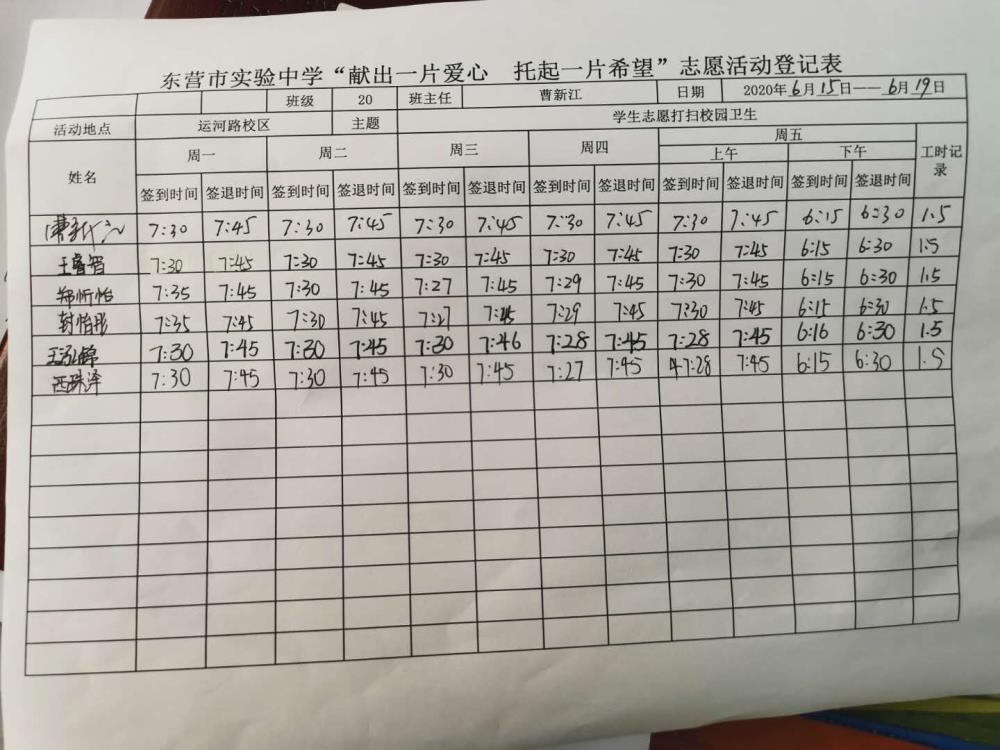 东营市实验中学“献出一片爱心 托起一片希望”志愿活动登记表
班级 20 班主任 曹新江 日期 2020年6月15日——6月19日
活动地点 运河路校区 主题 学生志愿打扫校园卫生
姓名 周一 周二 周三 周四 周五 工时记录
上午 下午
签到时间 签退时间 签到时间 签退时间 签到时间 签退时间 签到时间 签退时间 签到时间 签退时间 签到时间 签退时间
7:30 7:45 7:30 7:45 7:30 7:45 7:30 7:45 7:30 7:45 6:15 6:30 1.5
王睿智 7:30 7:45 7:30 7:45 7:30 7:45 7:30 7:45 7:30 7:45 6:15 6:30 1.5
郑忻怡 7:35 7:45 7:30 7:45 7:27 7:45 7:29 7:45 7:30 7:45 6:15 6:30 1.5
封怡彤 7:35 7:45 7:30 7:45 7:27 7:45 7:29 7:45 7:30 7:45 6:15 6:30 1.5
7:30 7:45 7:30 7:45 7:30 7:46 7:28 7:45 7:28 7:45 6:16 6:30 1.5
7:30 7:45 7:30 7:45 7:30 7:45 7:27 7:45 7:28 7:45 6:15 6:30 1.5